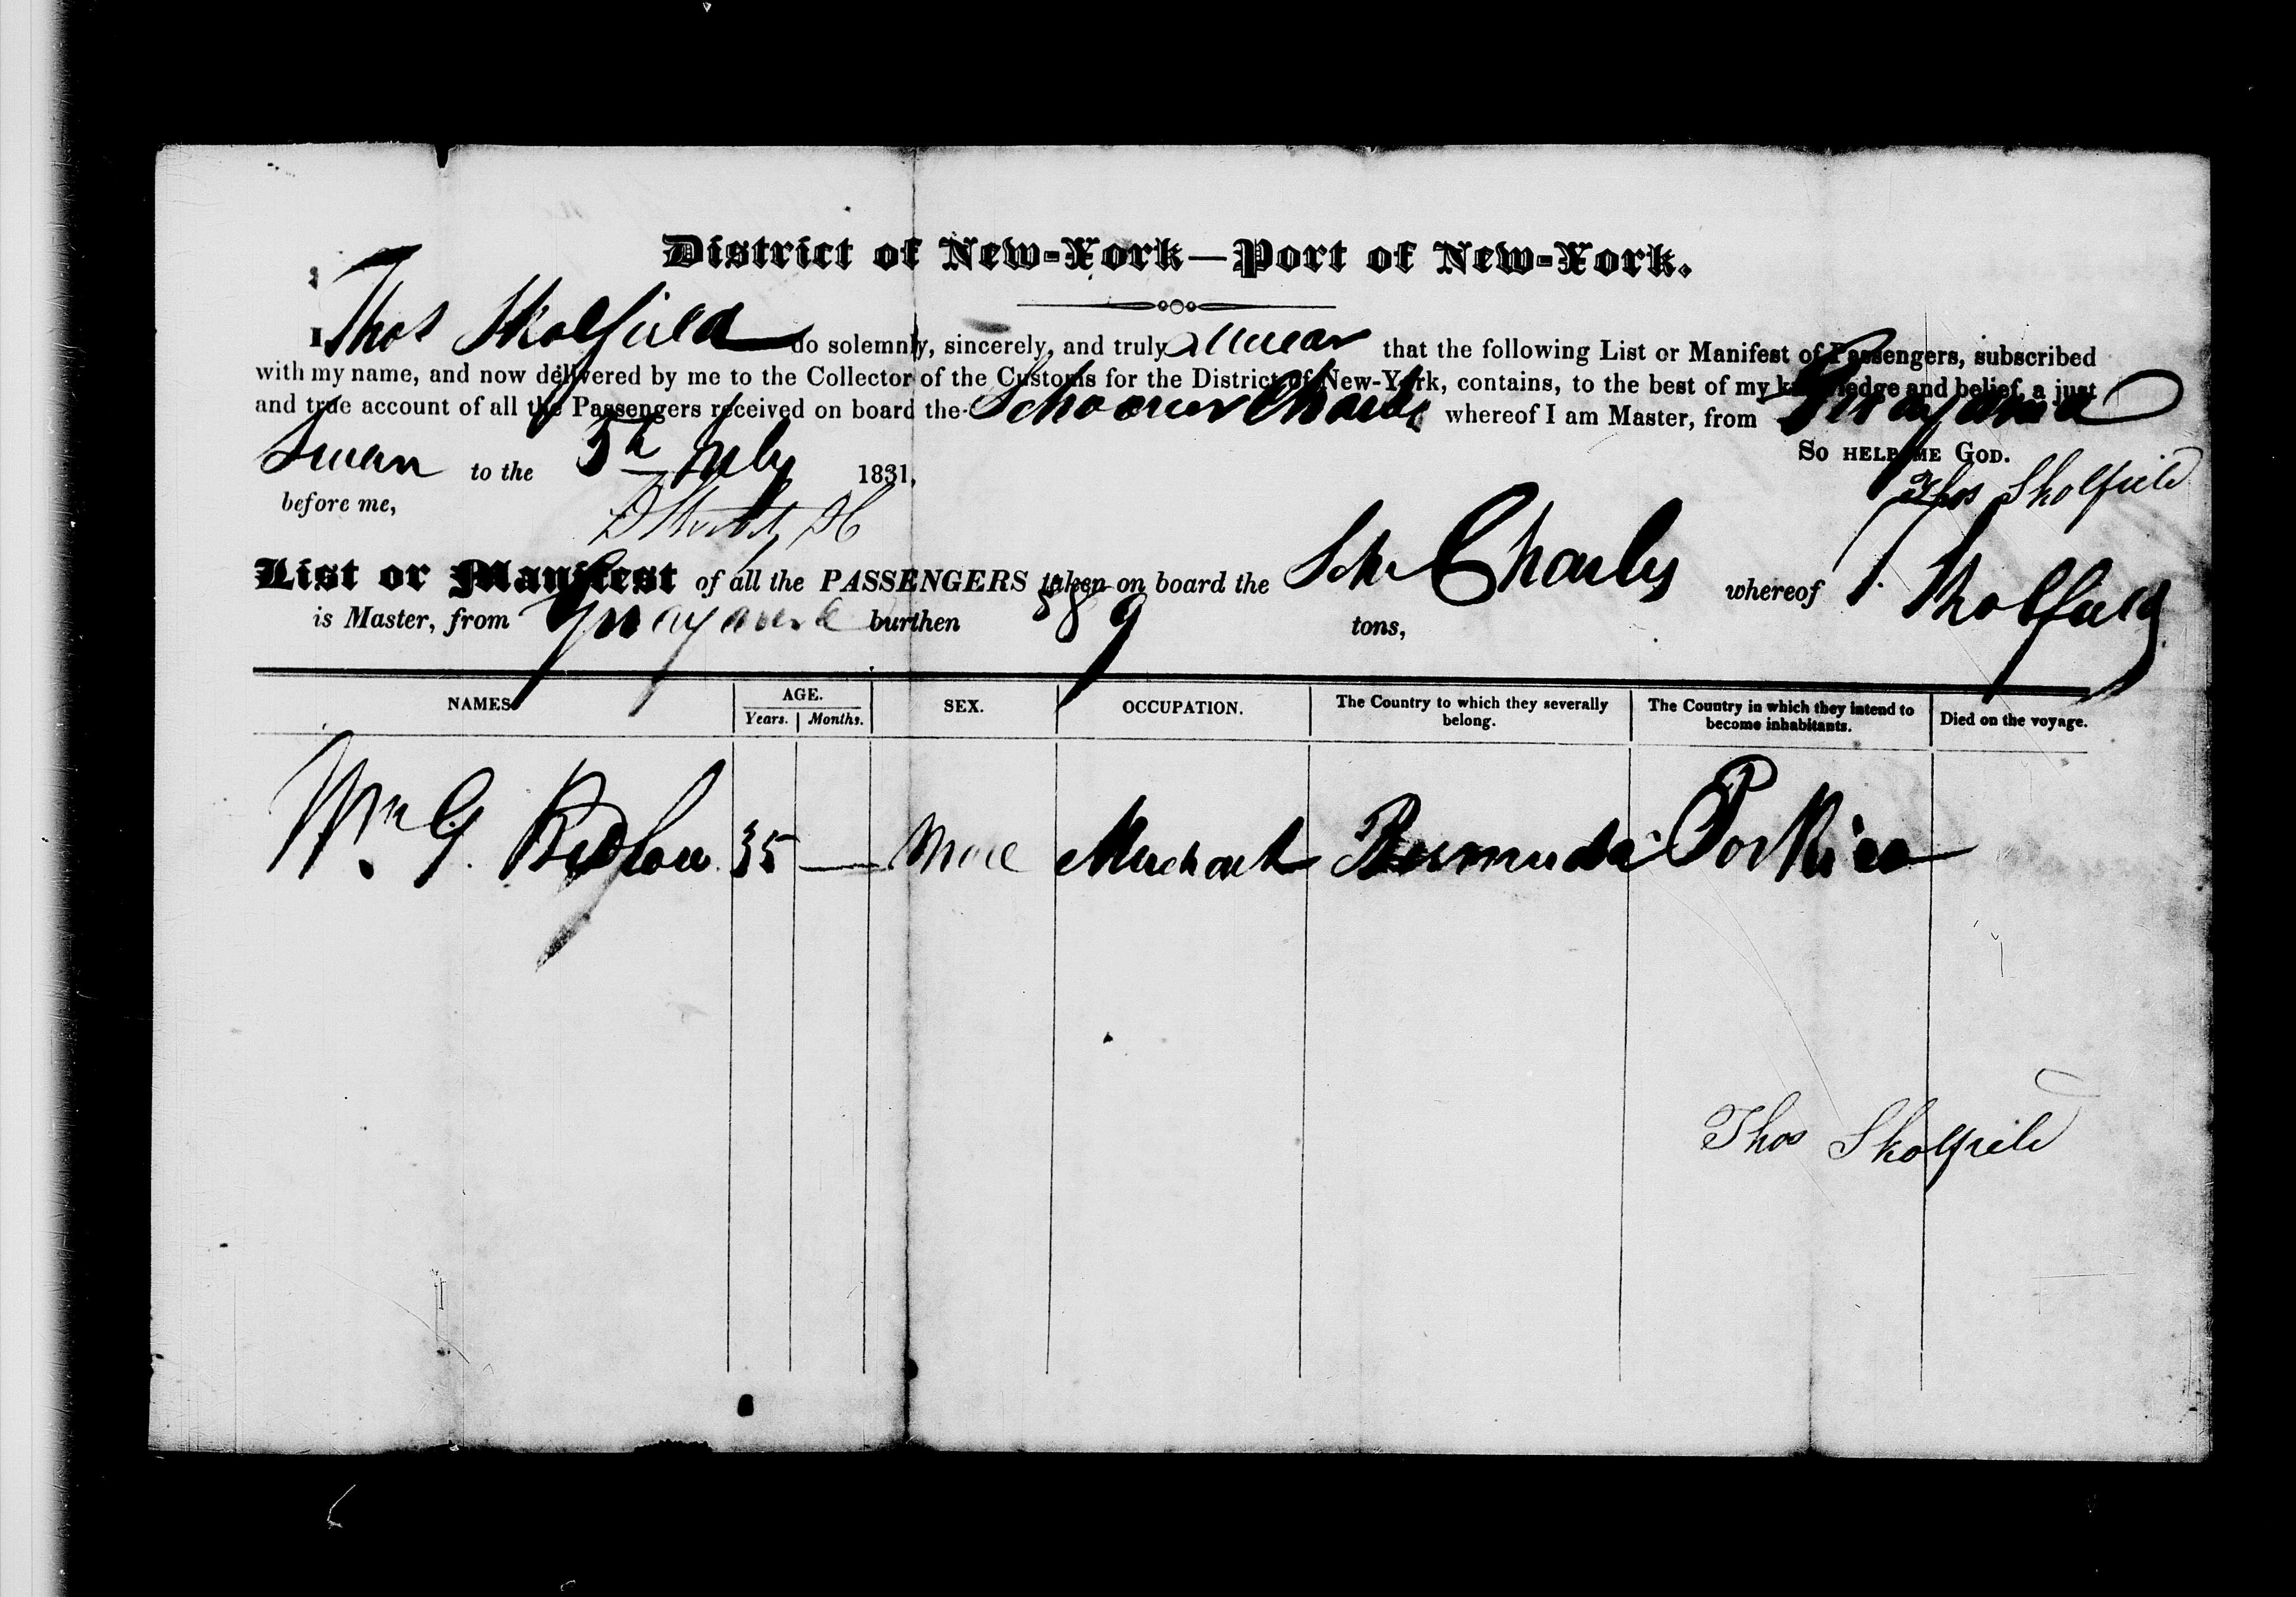 District of New-York—Port of New-York.
I Thos Skolfield do solemnly, sincerely, and truly swear that the following List or Manifest of Passengers, subscribed
with my name, and now delivered by me to the Collector of the Customs for the District of New-York, contains, to the best of my knowledge and belief, a just
and true account of all the Passengers received on board the Schooner Charles whereof I am Master, from
Swan to the 5th July 1831,
So help me God.
before me,
Thos Skolfield
List or Manifest of all the PASSENGERS taken on board the Schr Charles whereof T. Skolfield
is Master, from burthen 88 tons,
NAMES AGE. Years. Months. SEX. OCCUPATION. The Country to which they severally belong. The Country in which they intend to become inhabitants. Died on the voyage.
Wm. G. 35 — Male Merchant Bermuda Porto Rico
Thos Skolfield